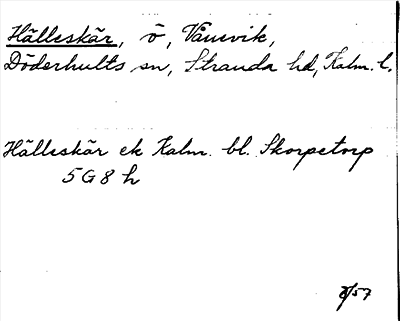 Hälleskär, ö, Vånevik,
Döderhults sn, Stranda hd, Kalm. l.
Hälleskär ek Kalm. bl. Skorpetorp
5 G 8 h